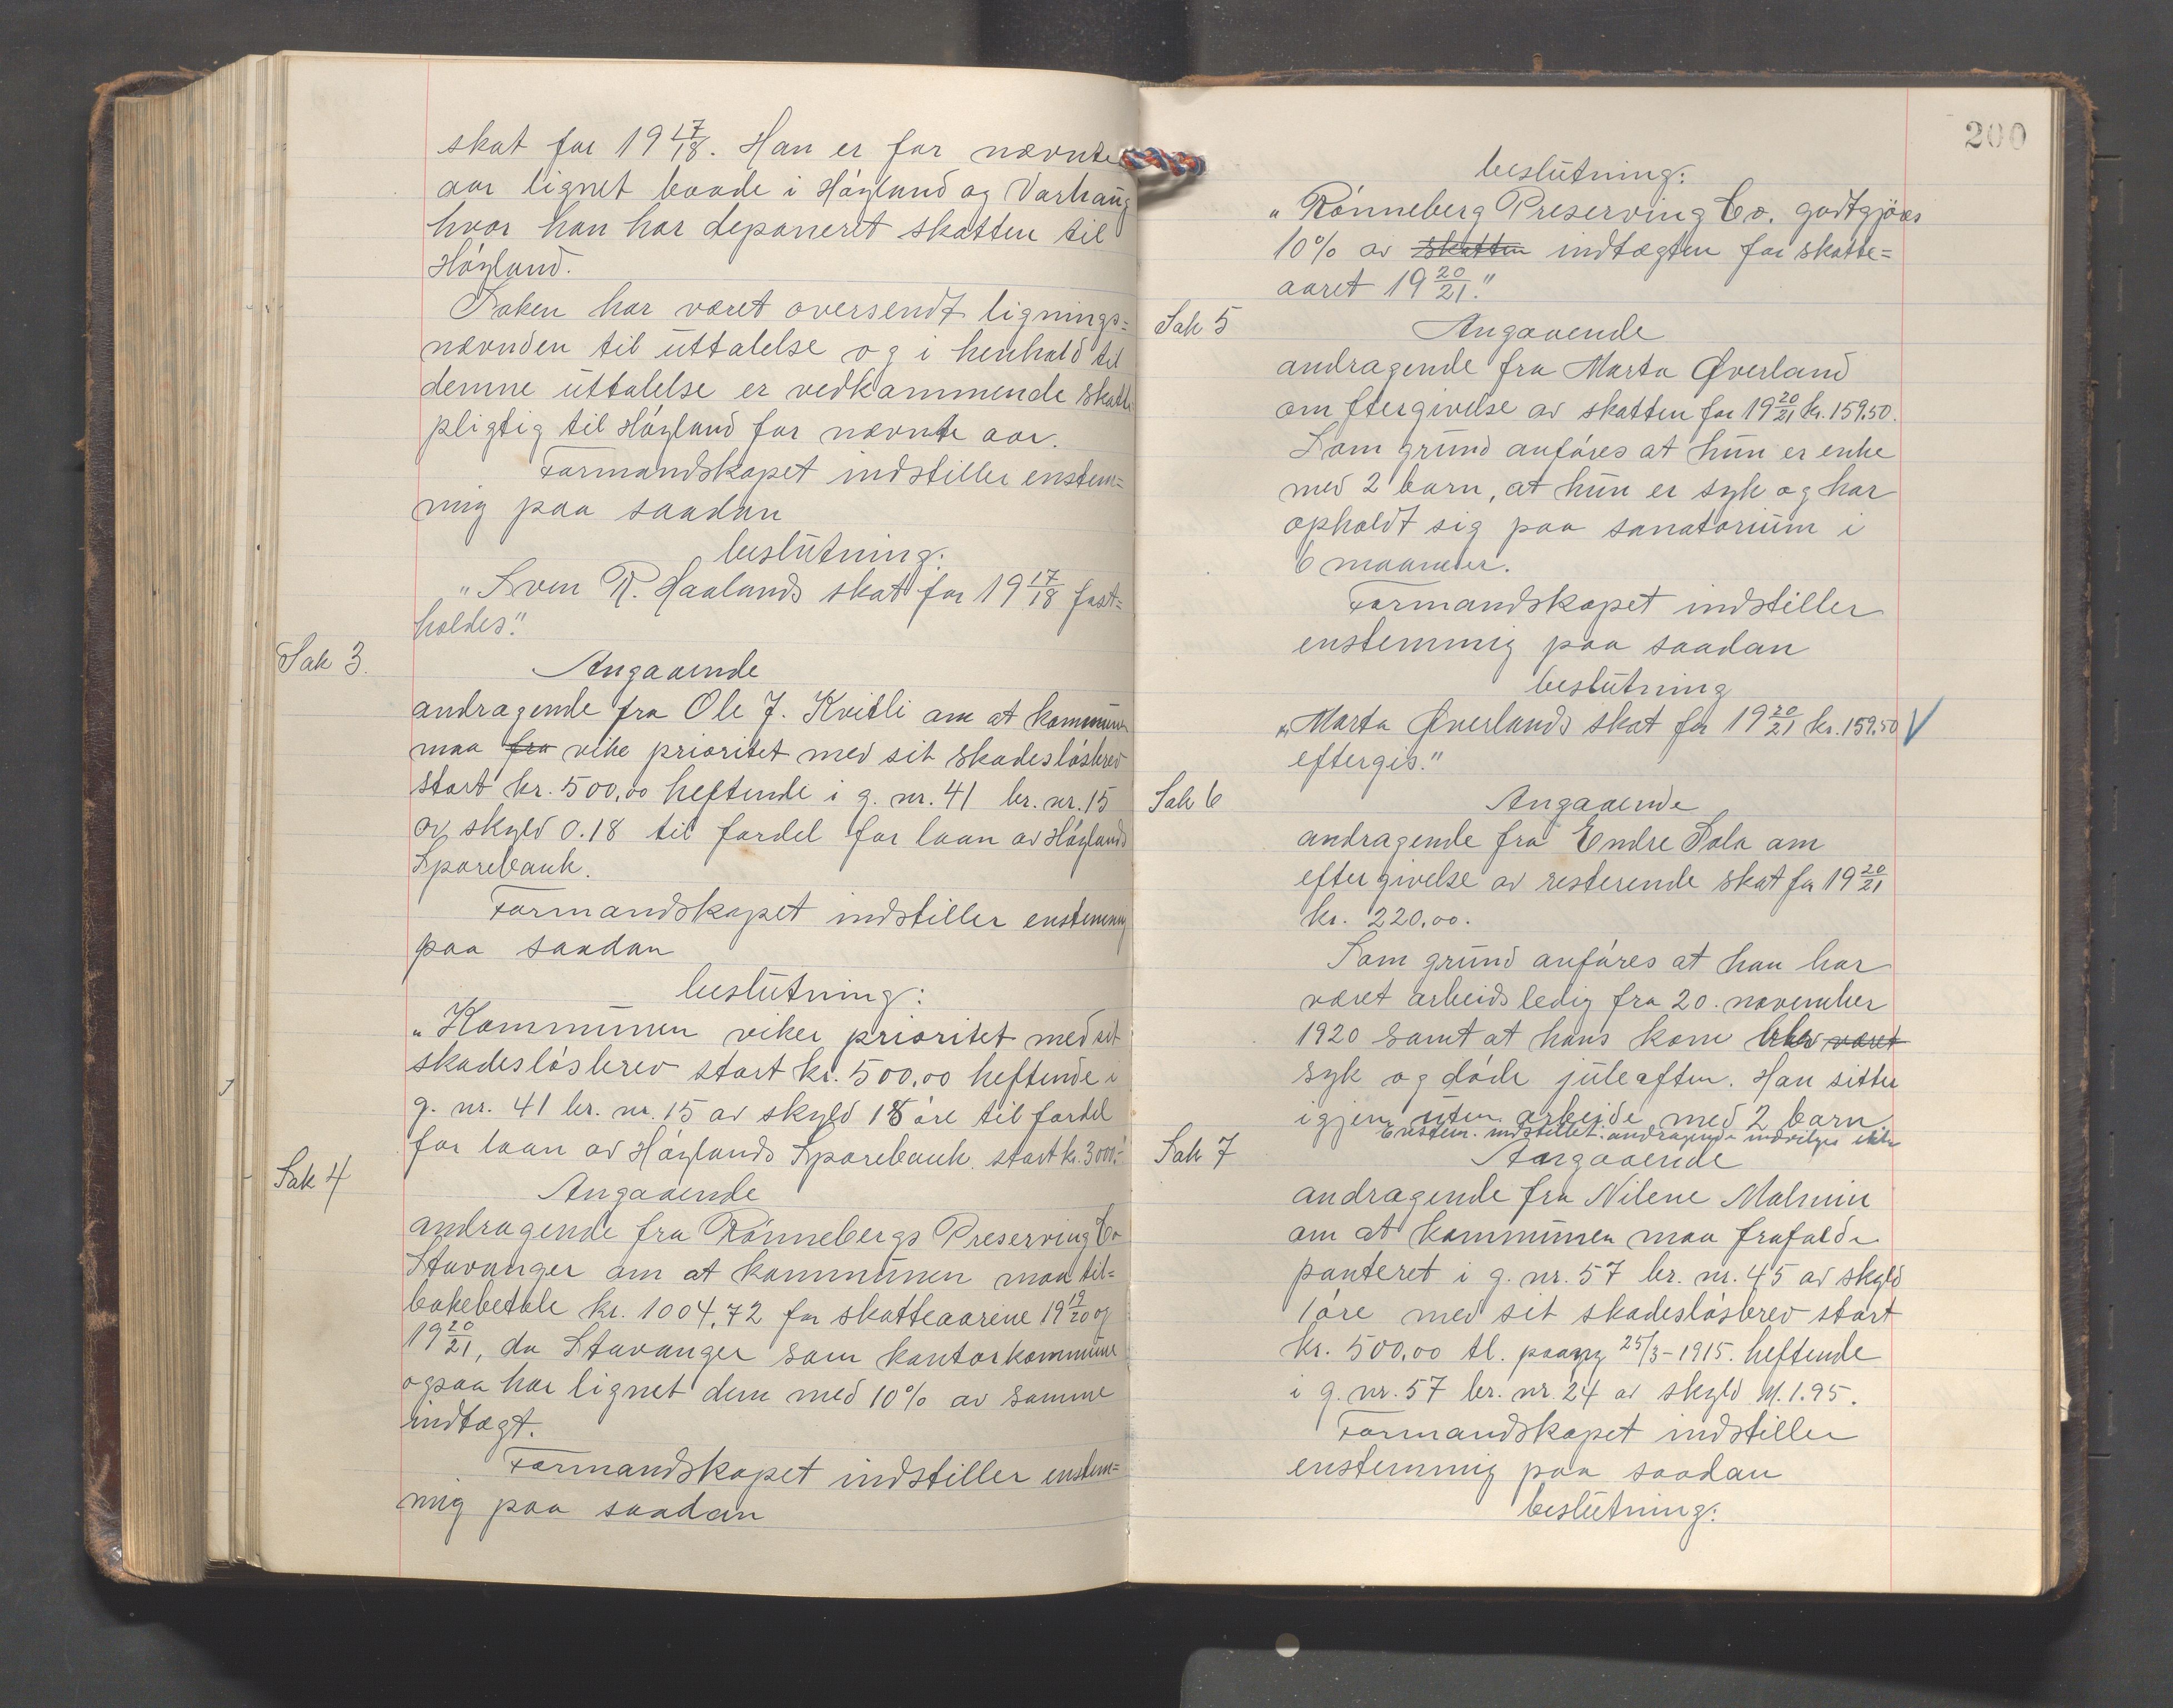 skat for 19 17/18. Han er for nævnte
aar lignet baade i Høyland og Varhaug
hvor han har deponeret skatten til
Høyland.
Saken har været oversendt lignings=
nævnden til uttalelse og i henhold til
denne uttalelse er vedkommende skatte
pligtig til Høyland for nævnte aar.
Formandskapet indstiller enstem=
mig paa saadan
beslutning:
"Sven R. Haalands skat for 19 17/18 fast=
holdes."
Sak 3.
Angaaende
andragende fra Ole J. Kvitli om at kommunen
maa fra vike prioritet med sit skadesløsbrev
stort kr. 500,00 heftende i g. nr. 41 br. nr. 15
av skyld 0.18 til fordel for laan av Høylands
Sparebank.
Formandskapet indstiller enstemmig
paa saadan
beslutning:
"Kommunen viker prioritet med sit
skadesløsbrev stort kr. 500,00 heftende i
g. nr. 41 br. nr. 15 av skyld 18 øre til fordel
for laan av Høylands Sparebank. stort kr. 3000.-"
Sak 4
Angaaende
andragende fra Rønnebergs Preserving Co
Stavanger om at kommunen maa til=
bakebetale kr. 1004,72 for skatteaarene 19 19/20 og
19 20/21, da Stavanger som kontorkommune
ogsaa har lignet dem med 10% av samme
indtægt.
Formandskapet indstiller enstem=
mig paa saadan
200
beslutning:
"Rønneberg Preserving Co. godtgjøres
10% av skatten indtægten for skatte=
aaret 19 20/21."
Sak 5
Angaaende
andragende fra Marta Øverland
om ftergivelse av skatten for 19 20/21 kr. 159,50.
Som grund anføres at hun er enke
med 2 barn, at hun er syk og har
opholdt sig paa sanatorium i
6 maaneder.
Formandskapet indstiller
enstemmig paa saadan
beslutning
"Marta Øverlands skat for 19 20/21 kr. 159,50
eftergis."
Sak 6
Angaaende
andragende fra Endre Sola om
eftergivelse av resterende skat for 19 20/21
kr. 220,00.
Som grund anføres at han har
været arbeidsledig fra 20. november
1920 samt at hans kone blev været
syk og døde juleaften. Han sitter
igjen uten arbeide med 2 barn
Enstem. indstillet: andragende indvilges ikke
Sak 7
Angaaende
andragende fra Nilene Malmin
om at kommunen maa frafalde
panteret i g. nr. 57 br. nr. 45 av skyld
1 øre med sit skadesløsbrev stort
kr. 500,00 tl. 25/3-1915. heftende
i g. nr. 57 br. nr. 24 av skyld M. 1.95.
Formandskapet indstiller
enstemmig paa saadan
beslutning: